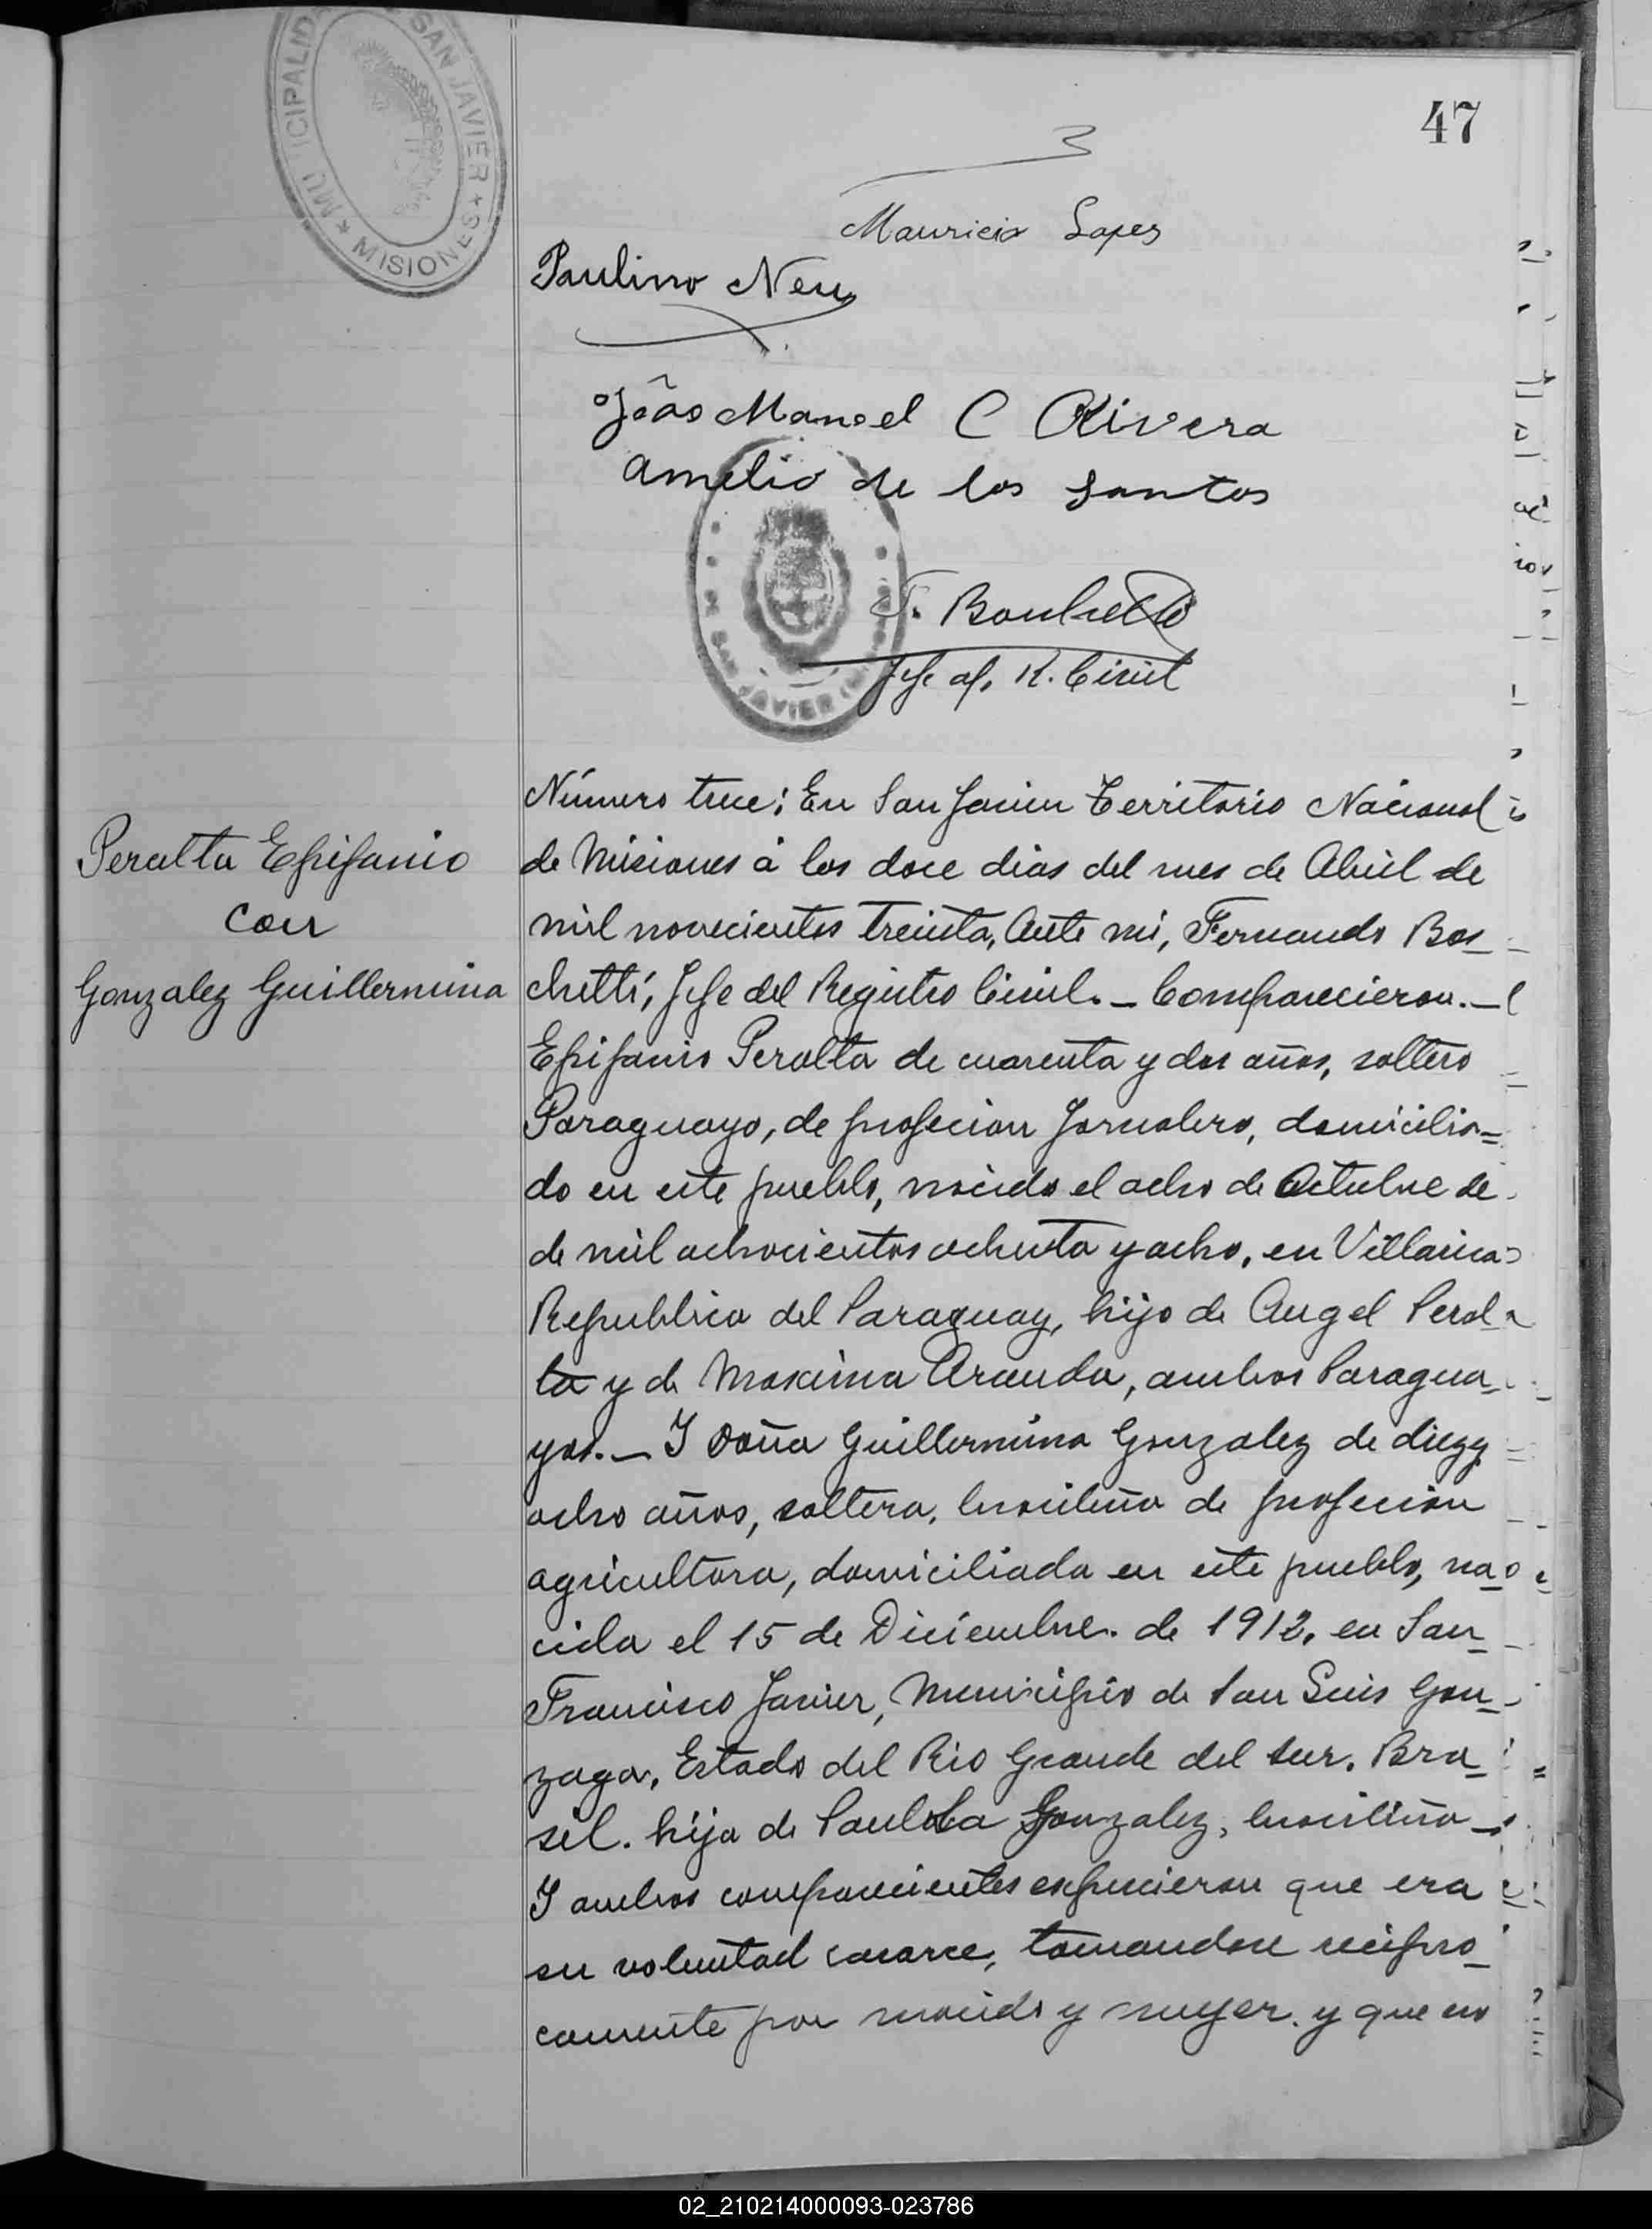 MUNICIPALIDAD DE SAN JAVIER
* MISIONES *
47
Mauricio Lopes
Paulino Neu
João Manoel C Rivera
Amelio de los Santos
SAN JAVIER
F. Boschetti
Jefe of. R. Civil
Peralta Epifanio
con
Gonzalez Guillermina
Número trece; En San Javier Territorio Nacional
de Misiones á los doce dias del mes de Abril de
mil novecientos treinta, Ante mi, Fernando Bos_
chetti, Jefe del Registro Civil. _ Comparecieron. _
Epifanio Peralta de cuarenta y dos años, soltero
Paraguayo, de profecion Jornalero, domicilia=
do en este pueblo, nacido el ocho de Octubre de
de mil ochocientos ochenta y ocho, en Villarica
Republica del Paraguay, hijo de Angel Peral_
ta y de Maxima Aranda, ambos Paragua_
yos. _ Y Doña Guillermina Gonzalez de diez y
ocho años, soltera, brasileña de profecion
agricultora, domiciliada en este pueblo, na_
cida el 15 de Diciembre. de 1912, en San_
Francisco Javier, Municipio de San Luis Gon_
zaga, Estado del Rio Grande del Sur. Bra_
sil. hija de Paula Gonzalez, brasileña _
Y ambos comparecientes expucieron que era
su voluntad casarce, tomandose recipro_
camente por marido y muger. y que no
02_210214000093-023786